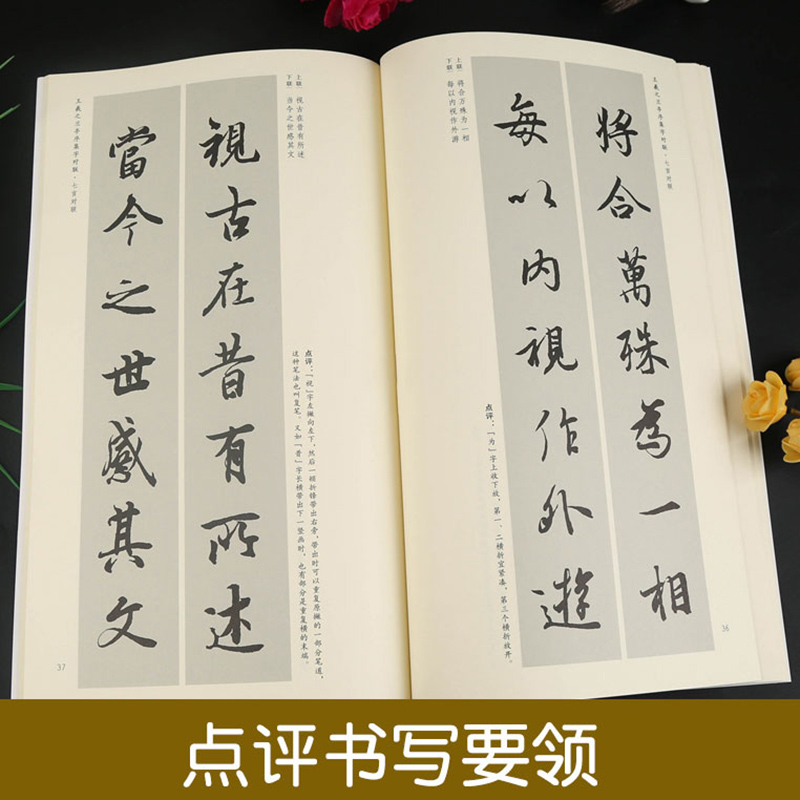 王羲之兰亭序集字对联·七言对联
將合萬殊為一相
每以内視作外遊
上联：将合万殊为一相
下联：每以内视作外游
点评：「为」字上收下放，第一、二横折宜紧凑，第三个横折放开。
36
上联：视古在昔有所述
下联：当今之世感其文
点评：「视」字左撇向左下，然后一顿折锋带出右旁，带出时可以重复原撇的一部分笔道，
这种笔法也叫复笔。又如「昔」字长横带出下一竖画时，也有部分是重复横的末端。
視古在昔有所述
當今之世感其文
王羲之兰亭序集字对联·七言对联
37
点评书写要领